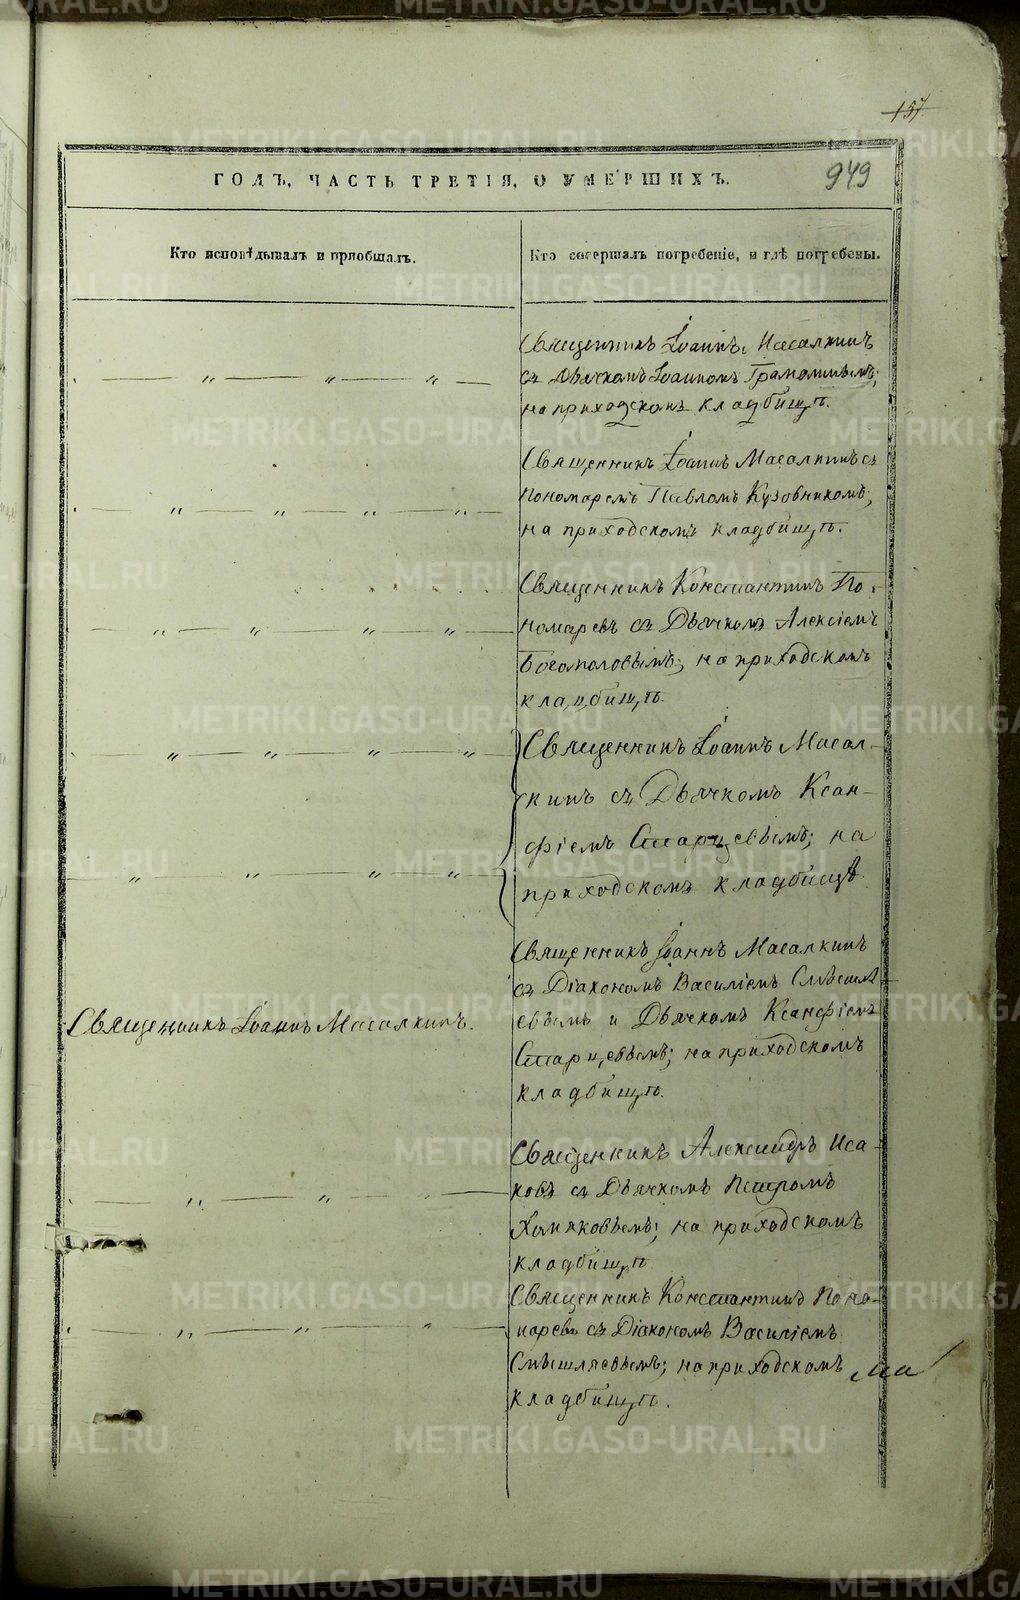 157
949
ГОДЪ, ЧАСТЬ ТРЕТІЯ, О УМЕРШИХЪ.
Кто исповѣдывалъ и пріобщалъ.
Кто совершалъ погребеніе, и гдѣ погребены.
Священникъ Іоаннъ Масалкинъ
съ Дьячкомъ Іоанномъ Грамолинымъ;
на приходскомъ кладбищѣ.
Священникъ Іоаннъ Масалкинъ съ
Пономаремъ Павломъ Кузовниковымъ;
на приходскомъ кладбищѣ.
Священникъ Константинъ По-
номаревъ съ Дьячкомъ Алексѣемъ
Богомоловымъ; на приходскомъ
кладбищѣ.
Священникъ Іоаннъ Масал-
кинъ съ Дьячкомъ Ксан-
фіемъ Старцевымъ; на
приходскомъ кладбищѣ.
Священникъ Іоаннъ Масалкинъ.
Священникъ Іоаннъ Масалкинъ
съ Діакономъ Василіемъ Смышля-
евымъ и Дьячкомъ Ксанфіемъ
Старцевымъ; на приходскомъ
кладбищѣ.
Священникъ Александръ Иса-
ковъ съ Дьячкомъ Петромъ
Хомяковымъ; на приходскомъ
кладбищѣ.
Священникъ Константинъ Поно-
маревъ съ Діакономъ Василіемъ
Смышляевымъ; на приходскомъ
кладбищѣ.
METRIKI.GASO-URAL.RU